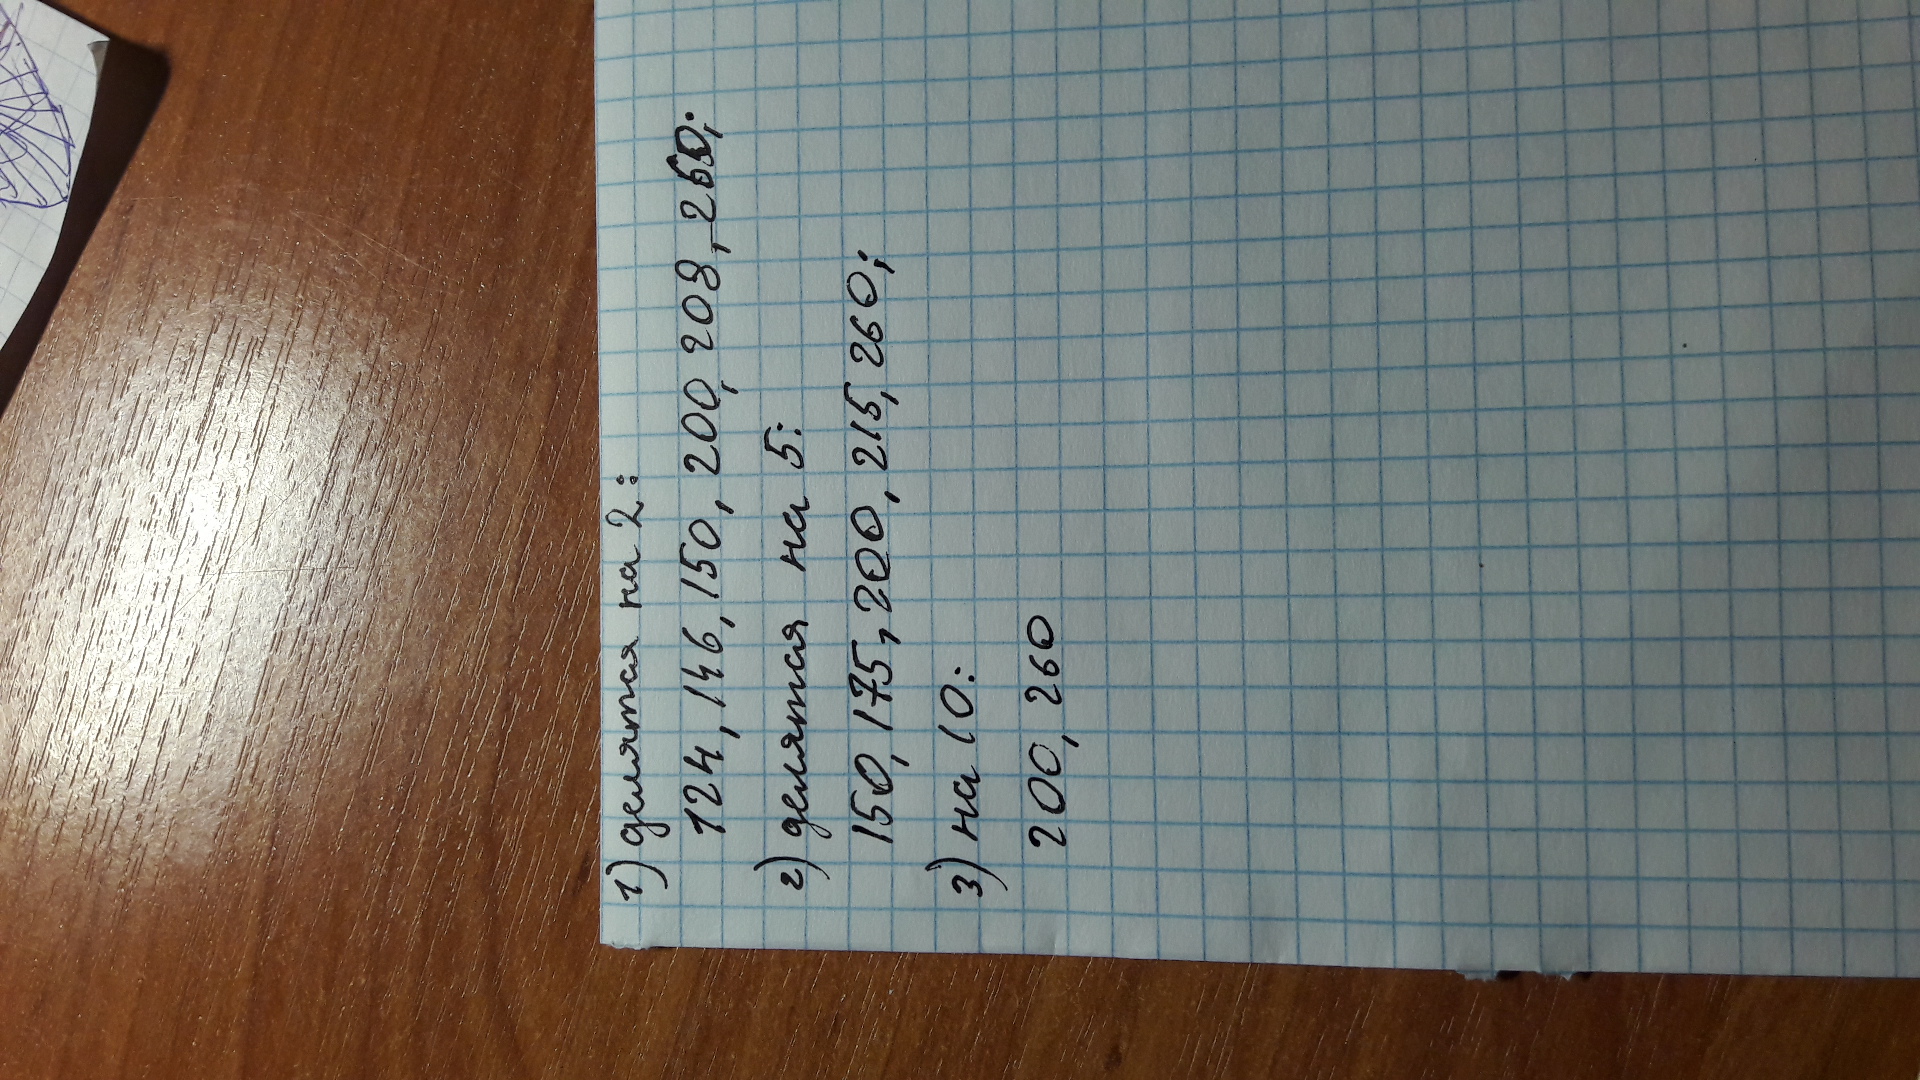 1) делятся на 2:
124, 146, 150, 200, 208, 260;
2) делятся на 5:
150, 175, 200, 215, 260;
3) на 10:
200, 260